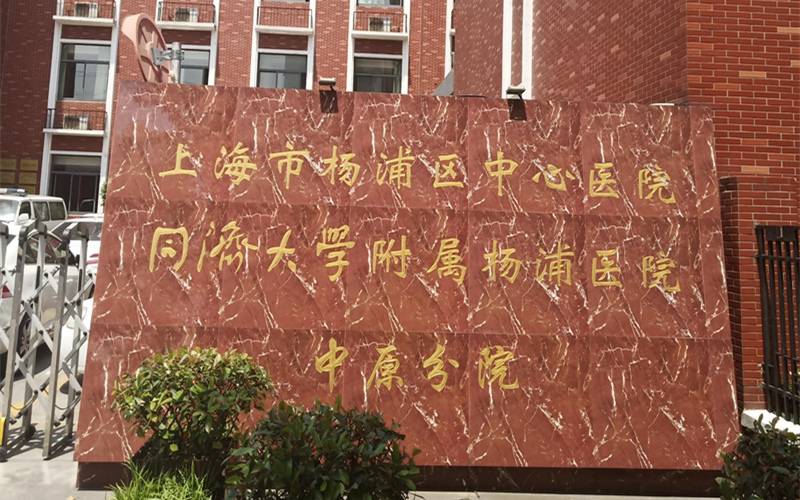 上海市杨浦区中心医院
同濟大學附属杨浦医院
中原分院